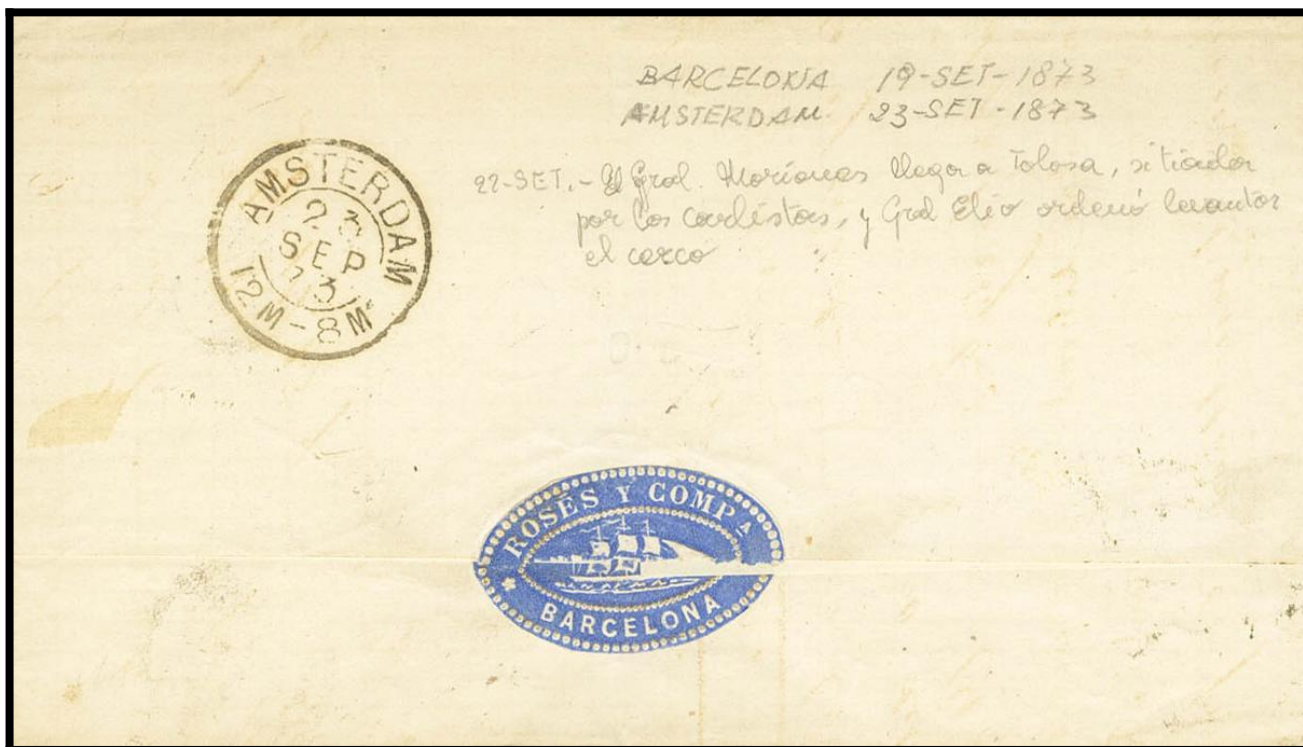 BARCELONA 19-SET-1873
AMSTERDAM. 23-SET-1873
22-SET.- El Gral. Moriones llega a Tolosa, sitiada
por los carlistas, y Gral Elío ordenó levantar
el cerco
AMSTERDAM
23
SEP
73
12M-8M
ROSÉS Y COMPA
BARCELONA